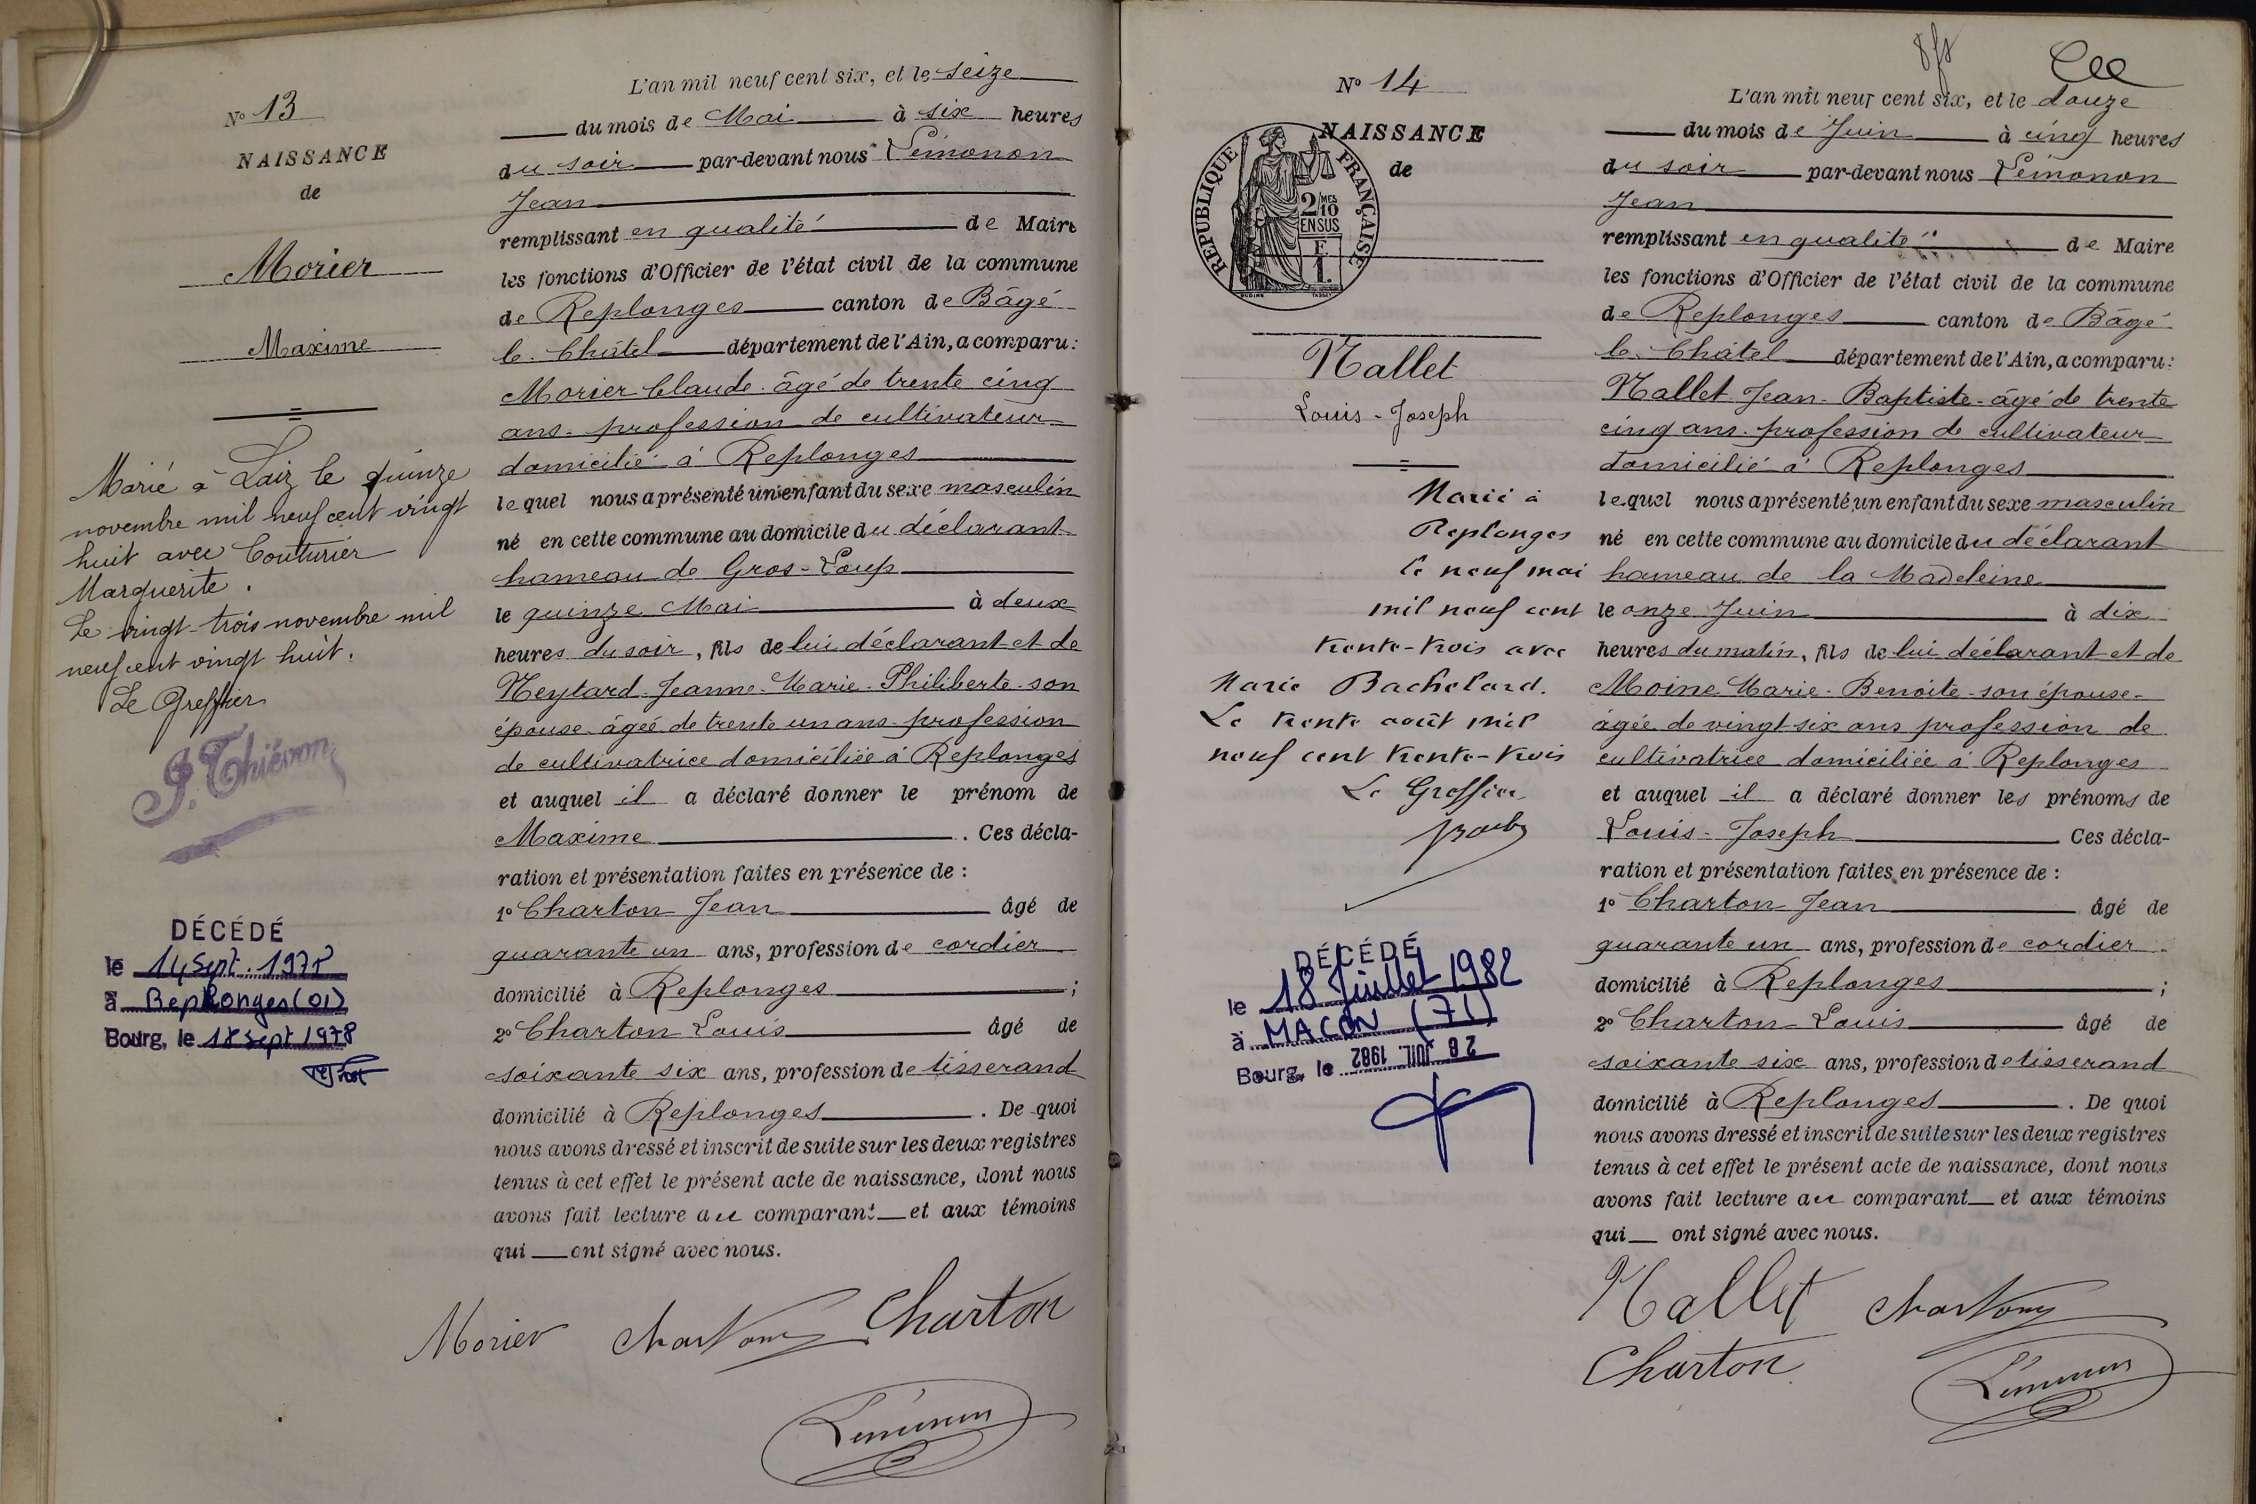 N° 13
NAISSANCE
de
Morier
Maxime
Marié à Laiz le quinze
novembre mil neuf cent vingt
huit avec Couturier
Marguerite.
Le vingt-trois novembre mil
neuf cent vingt huit.
Le Greffier
P. Thiévon
DÉCÉDÉ
le 14 Sept. 1978
à Replonges (01)
Bourg, le 18 sept 1978
L'an mil neuf cent six, et le seize
du mois de Mai à six heures
du soir par-devant nous Lémonon
Jean
remplissant en qualité de Maire
les fonctions d'Officier de l'état civil de la commune
de Replonges canton de Bâgé
le Châtel département de l'Ain, a comparu:
Morier Claude âgé de trente cinq
ans profession de cultivateur
domicilié à Replonges
lequel nous a présenté un enfant du sexe masculin
né en cette commune au domicile du déclarant
hameau de Gros-Loup
le quinze Mai à deux
heures du soir, fils de lui déclarant et de
Neytard Jeanne-Marie-Philiberte son
épouse âgée de trente un ans profession
de cultivatrice domiciliée à Replonges
et auquel il a déclaré donner le prénom de
Maxime. Ces décla-
ration et présentation faites en présence de :
1° Charton Jean âgé de
quarante un ans, profession de cordier
domicilié à Replonges ;
2° Charton Louis âgé de
soixante six ans, profession de tisserand
domicilié à Replonges. De quoi
nous avons dressé et inscrit de suite sur les deux registres
tenus à cet effet le présent acte de naissance, dont nous
avons fait lecture au comparant et aux témoins
qui ont signé avec nous.
Morier Charton Charton
Lémonon
N° 14
NAISSANCE
de
RÉPUBLIQUE FRANÇAISE
2/10 MES
EN SUS
F
1.
Nallet
Louis-Joseph
Marié à
Replonges
le neuf mai
mil neuf cent
trente-trois avec
Marie Bachelard.
Le trente août mil
neuf cent trente-trois
Le Greffier
DÉCÉDÉ
le 18 Juillet 1982
à MACON (71)
Bourg, le 28 JUIL. 1982
L'an mil neuf cent six, et le douze
du mois de Juin à cinq heures
du soir par-devant nous Lémonon
Jean
remplissant en qualité de Maire
les fonctions d'Officier de l'état civil de la commune
de Replonges canton de Bâgé
le Châtel département de l'Ain, a comparu:
Nallet Jean-Baptiste âgé de trente
cinq ans profession de cultivateur
domicilié à Replonges
lequel nous a présenté un enfant du sexe masculin
né en cette commune au domicile du déclarant
hameau de la Madeleine
le onze Juin à dix
heures du matin, fils de lui déclarant et de
Moine Marie-Benoite son épouse
âgée de vingt-six ans profession de
cultivatrice domiciliée à Replonges
et auquel il a déclaré donner les prénoms de
Louis-Joseph Ces décla-
ration et présentation faites en présence de :
1° Charton Jean âgé de
quarante un ans, profession de cordier
domicilié à Replonges ;
2° Charton Louis âgé de
soixante six ans, profession de tisserand
domicilié à Replonges. De quoi
nous avons dressé et inscrit de suite sur les deux registres
tenus à cet effet le présent acte de naissance, dont nous
avons fait lecture au comparant et aux témoins
qui ont signé avec nous.
Nallet Charton
Charton Lémonon